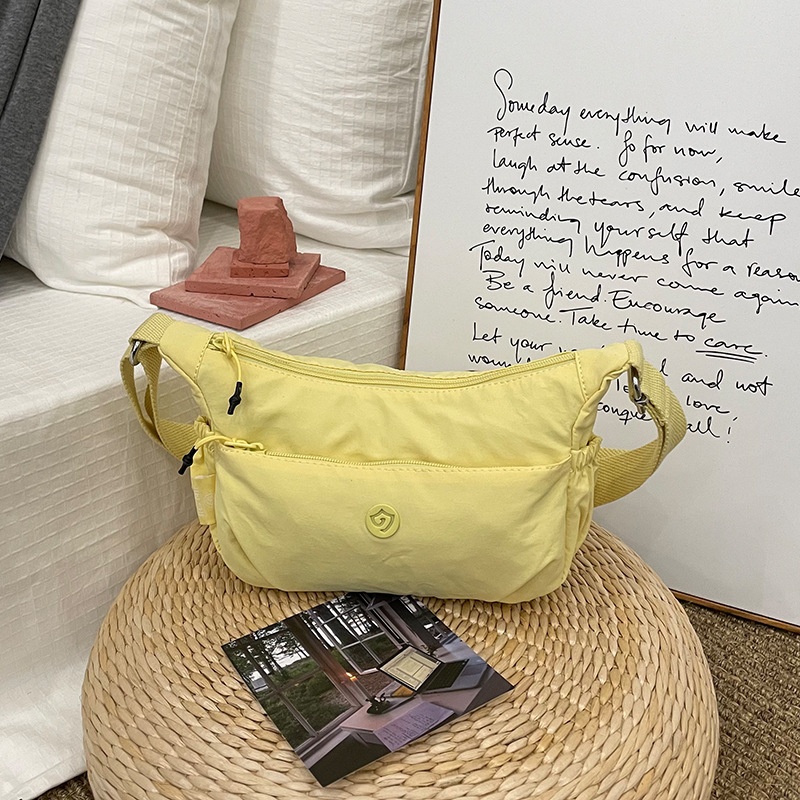 Someday everything will make
perfect sense. So for now,
laugh at the confusion, smile
through the tears, and keep
reminding yourself that
everything happens for a reason
Today will never come again
Be a friend. Encourage
someone. Take time to care.
Let your
and not
love,
all!